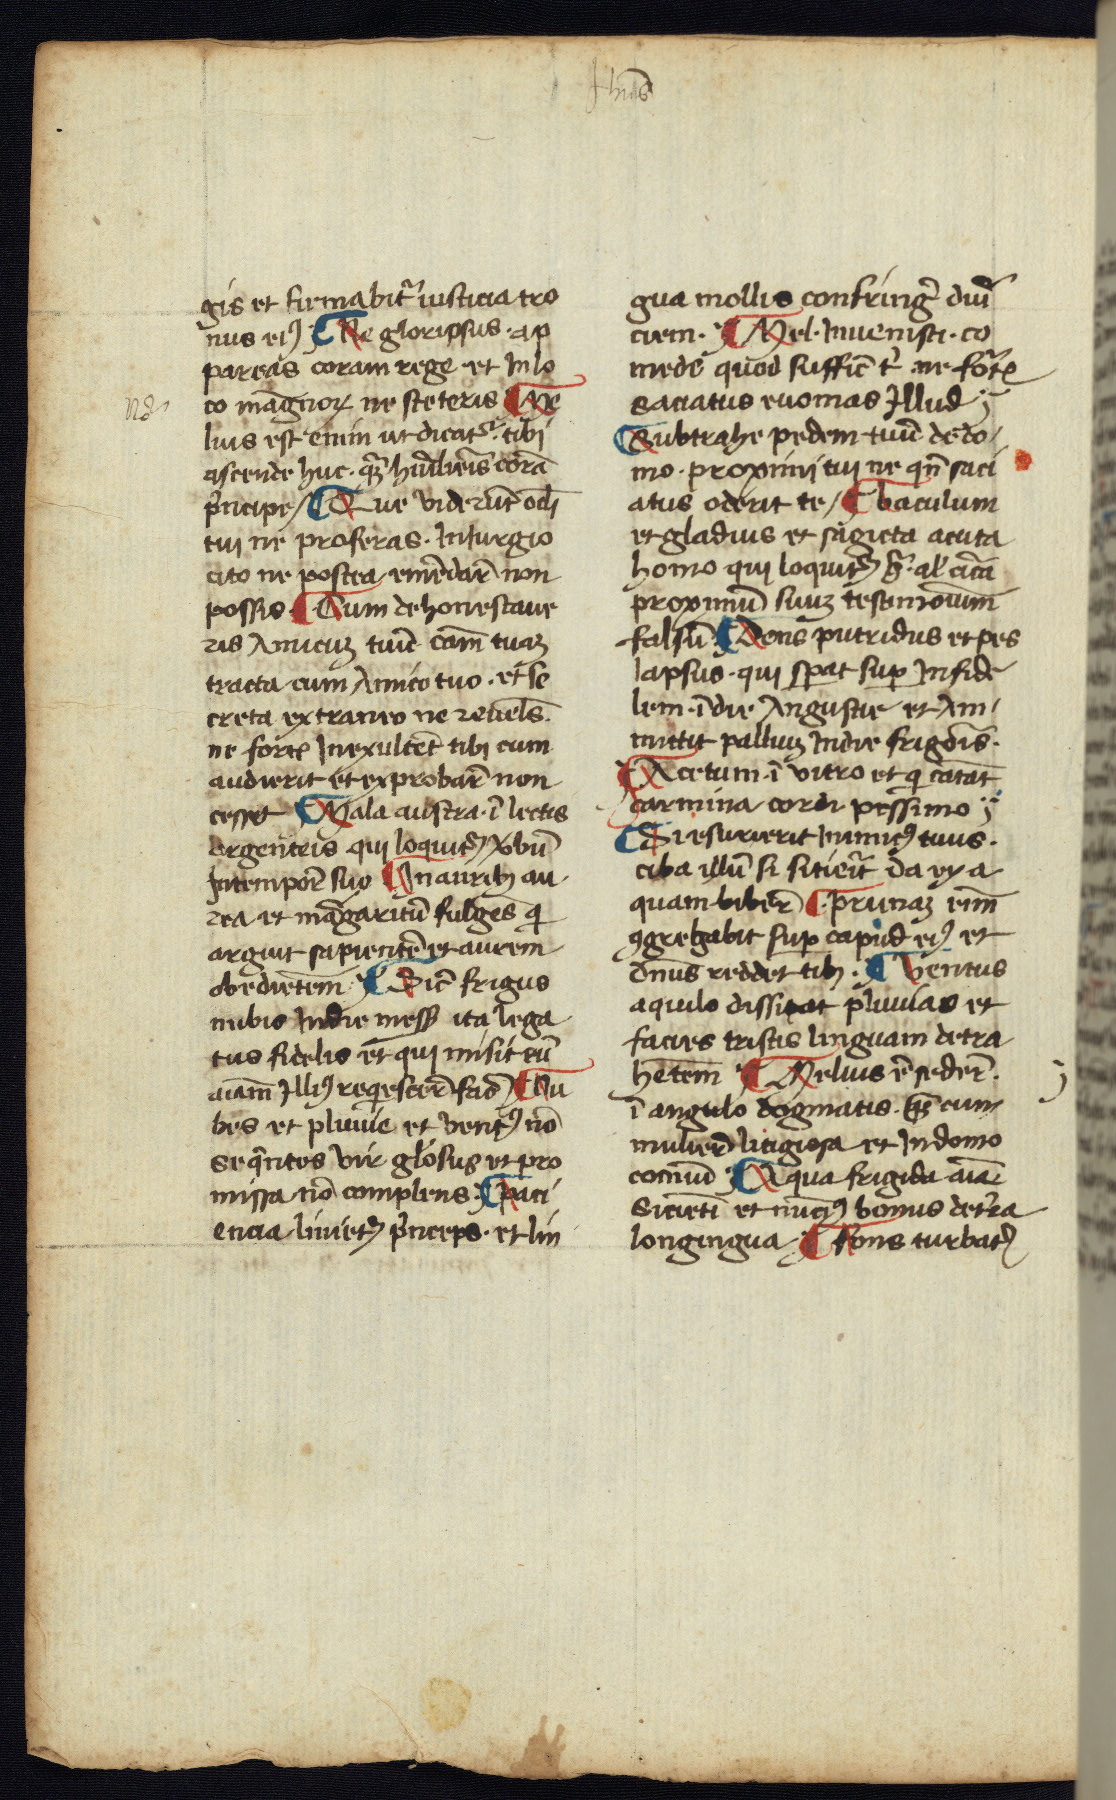 Jhus̄
gis et firmabit᷑ iusticia tro
nus eiꝰ ¶ Ne gloriosus · ap
pareas coram rege · et in lo
co magnoꝝ ne steteris ¶ Me
lius est enim ut dicat᷑ · tibi
ascende huc · qꝫ̄ humilieris corā
p̄ncipe / ¶ Que viderūt oc̄li
tui ne proferas · in iurgio
cito ne postea emēdar̄ non
possis · ¶ Cum dehonestaue
ris amicuꝫ tuū cām tuaꝫ
tracta cum amico tuo · et se
creta extraneo ne reueles̄
ne forte inexultet tibi cum
audierit et exprobar̄ non
cesset ¶ Mala austra · ī lectis
argenteis qui loquit᷑ v̄bū
in tempor̄ suo ¶ Inauris au
rea et mārgaritū fulgēs qi
arguit sapientē et aurem
obediētem · ¶ Sic̄ frigus
niuis in die mess̄ ita lega
tus fidelis et qui misit eū
aīam illiꝰ reqiescer̄ fac̄ ¶ Nu
bes et pluuie et ventꝰ nō
seqn̄tes vir glōsus et pro
missa nō complens · ¶ Paci
encia liniet᷑ p̄nceps · et lin
gua mollis confringet̄ duri
ciem · ¶ Mel · inuenisti · co
mede quod sufficit tⁱ · ne forte
saciatus euomas illud ·
¶ Subtrahe pedem tuū de do
mo · proximi tui ne qn̄ saci
atus oderit te / ¶ baculum
et gladius et sagicta acuta
homo qui loquit᷑ g̊ · al c̄ t̄a
proximū suuꝫ testimoīum
falsū · ¶ Dens putridus et pes
lapsus · qui sperat sup̄ infide
lem · ī die angustie et am
mittit palliuꝫ in die frigoris ·
¶ Acetum · ī vitro et qi cātat
carmina cordi pessimo ·
¶ Si esurierit inimicꝰ tuus ·
ciba illū si sitierit da ey a
quam biber̄ ¶ prunaꝫ enim
ꝯgregabit sup̄ capud eiꝰ et
dn̄us reddet tibi · ¶ Ventus
aquilo dissipat pluuias et
facies tristis linguam detra
hētem ¶ Melius ē seder̄ ·
ī angulo dogmatis · qꝫ̄ cum
muliere litigiosa et in domo
comuni ¶ Aqua frigida aīe
sicienti et nūciꝰ bonus de t̄ra
longinqua ¶ Fons turbatꝰ